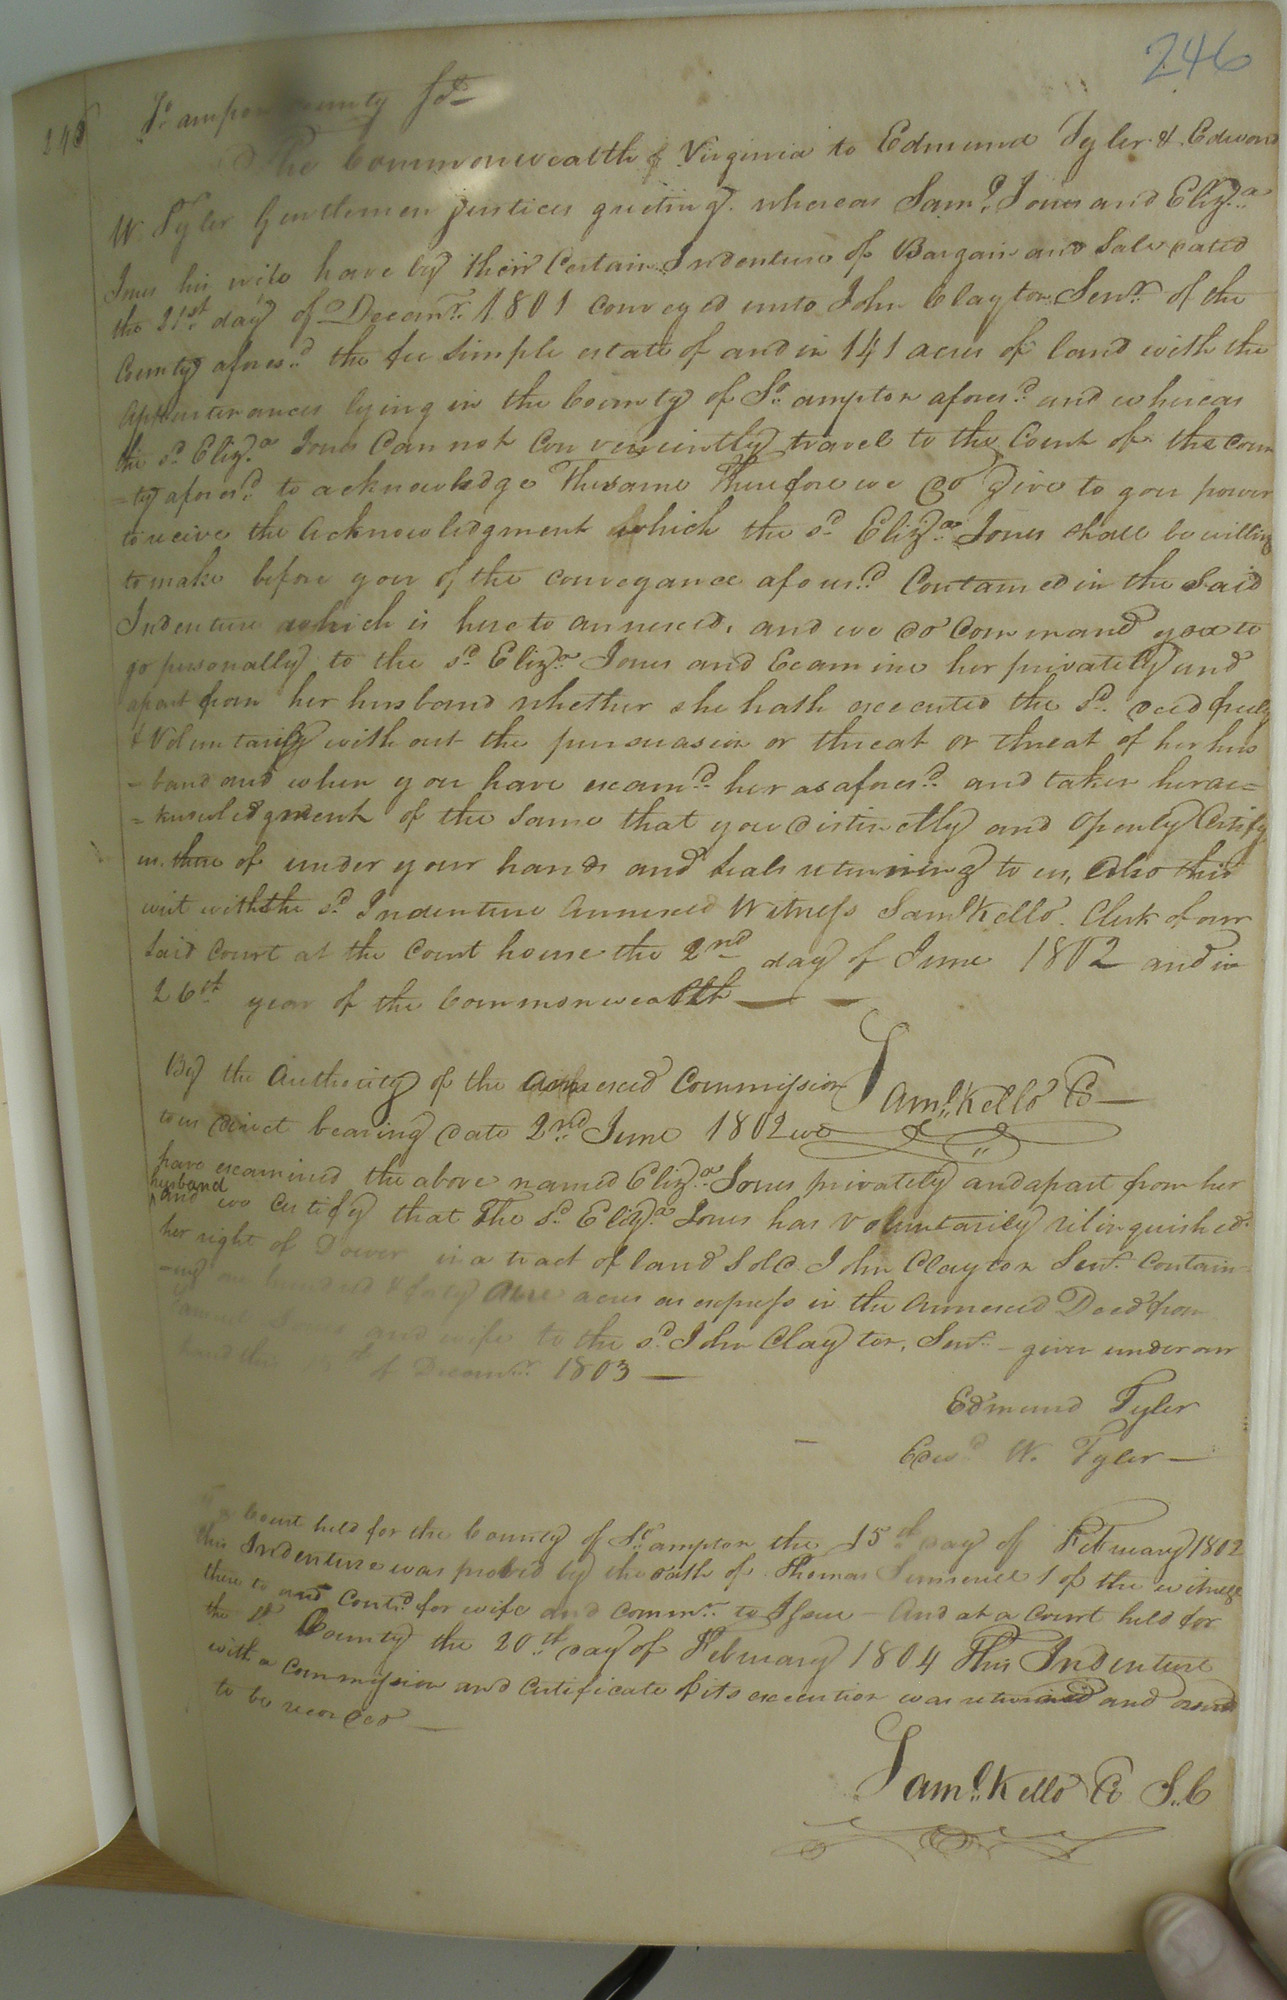 246
So. ampton County Sct
The Commonwealth of Virginia to Edmund Tyler & Edward
W. Tyler Gentlemen Justices greeting. whereas Saml. Jones and Eliza.
Jones his wife have by their Certain Indenture of Bargain and Sale dated
the 21st. day of Decemr. 1801 conveyed unto John Clayton Senr. of the
County afores.d the fee simple estate of and in 141 acres of land with the
appurtenances lying in the County of So. ampton afores.d and whereas
the sd. Eliza. Jones Cannot Conveniently travel to the Court of the Coun
=ty afores.d to acknowledge The same Therefore we do give to you power
to receive the Acknowledgment which the sd. Eliza. Jones shall be willing
to make before you of the conveyance afores.d Contained in the Said
Indenture which is hereto annexed, and we do Command you to
go personally to the sd. Eliza. Jones and Examine her privately and
apart from her husband whether she hath executed the sd. deed freely
& Voluntarily with out the persuasion or threat or threat of her hus
=band and when you have exam.d her as afores.d and taken her ac=
=knowledgment of the same that you distinctly and Openly Certify
us there of under your hands and seals returning to us, Also this
writ with the sd. Indenture Annexed Witness Saml. Kello. Clerk of our
said Court at the Court house the 2nd day of June 1802 and in
26th year of the Commonwealth
Saml. Kello Cl
By the Authority of the annexed Commission
to us direct bearing date 2nd. June 1802 we
have examined the above named Eliza. Jones privately and apart from her
husband
and we Certify that The sd. Eliza. Jones has voluntarily relinquished
her right of Dower in a tract of land sold John Clayton Senr. Contain=
=ing one hundred & forty One acres as express in the Annexed Deed from
Jones and wife to the sd. John Clayton, Senr. given under our
of Decemr. 1803
Edmund Tyler
Edwd. W. Tyler
Court held for the County of So. ampton the 15th day of February 1802
this Indenture was proved by the oath of Thomas 1 of the witness
there to and Contd. for wife and commn. to Issue And at a Court held for
the sd. County the 20th. day of February 1804 This Indenture
with a commission and Certificate of its execution was returned and ord
to be recorded
Saml. Kello Cl S. C